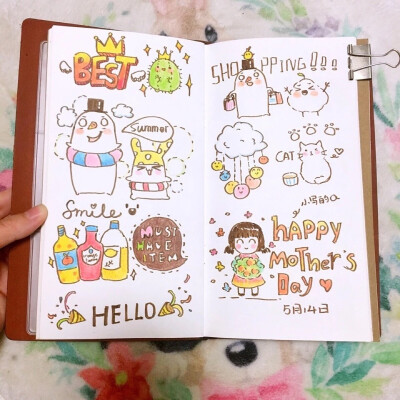 BEST
Summer
Smile
MUST
HAVE
ITEM
HELLO
SHOPPING!!!
CAT
HAPPY
MOTHER'S
DAY
5月14日